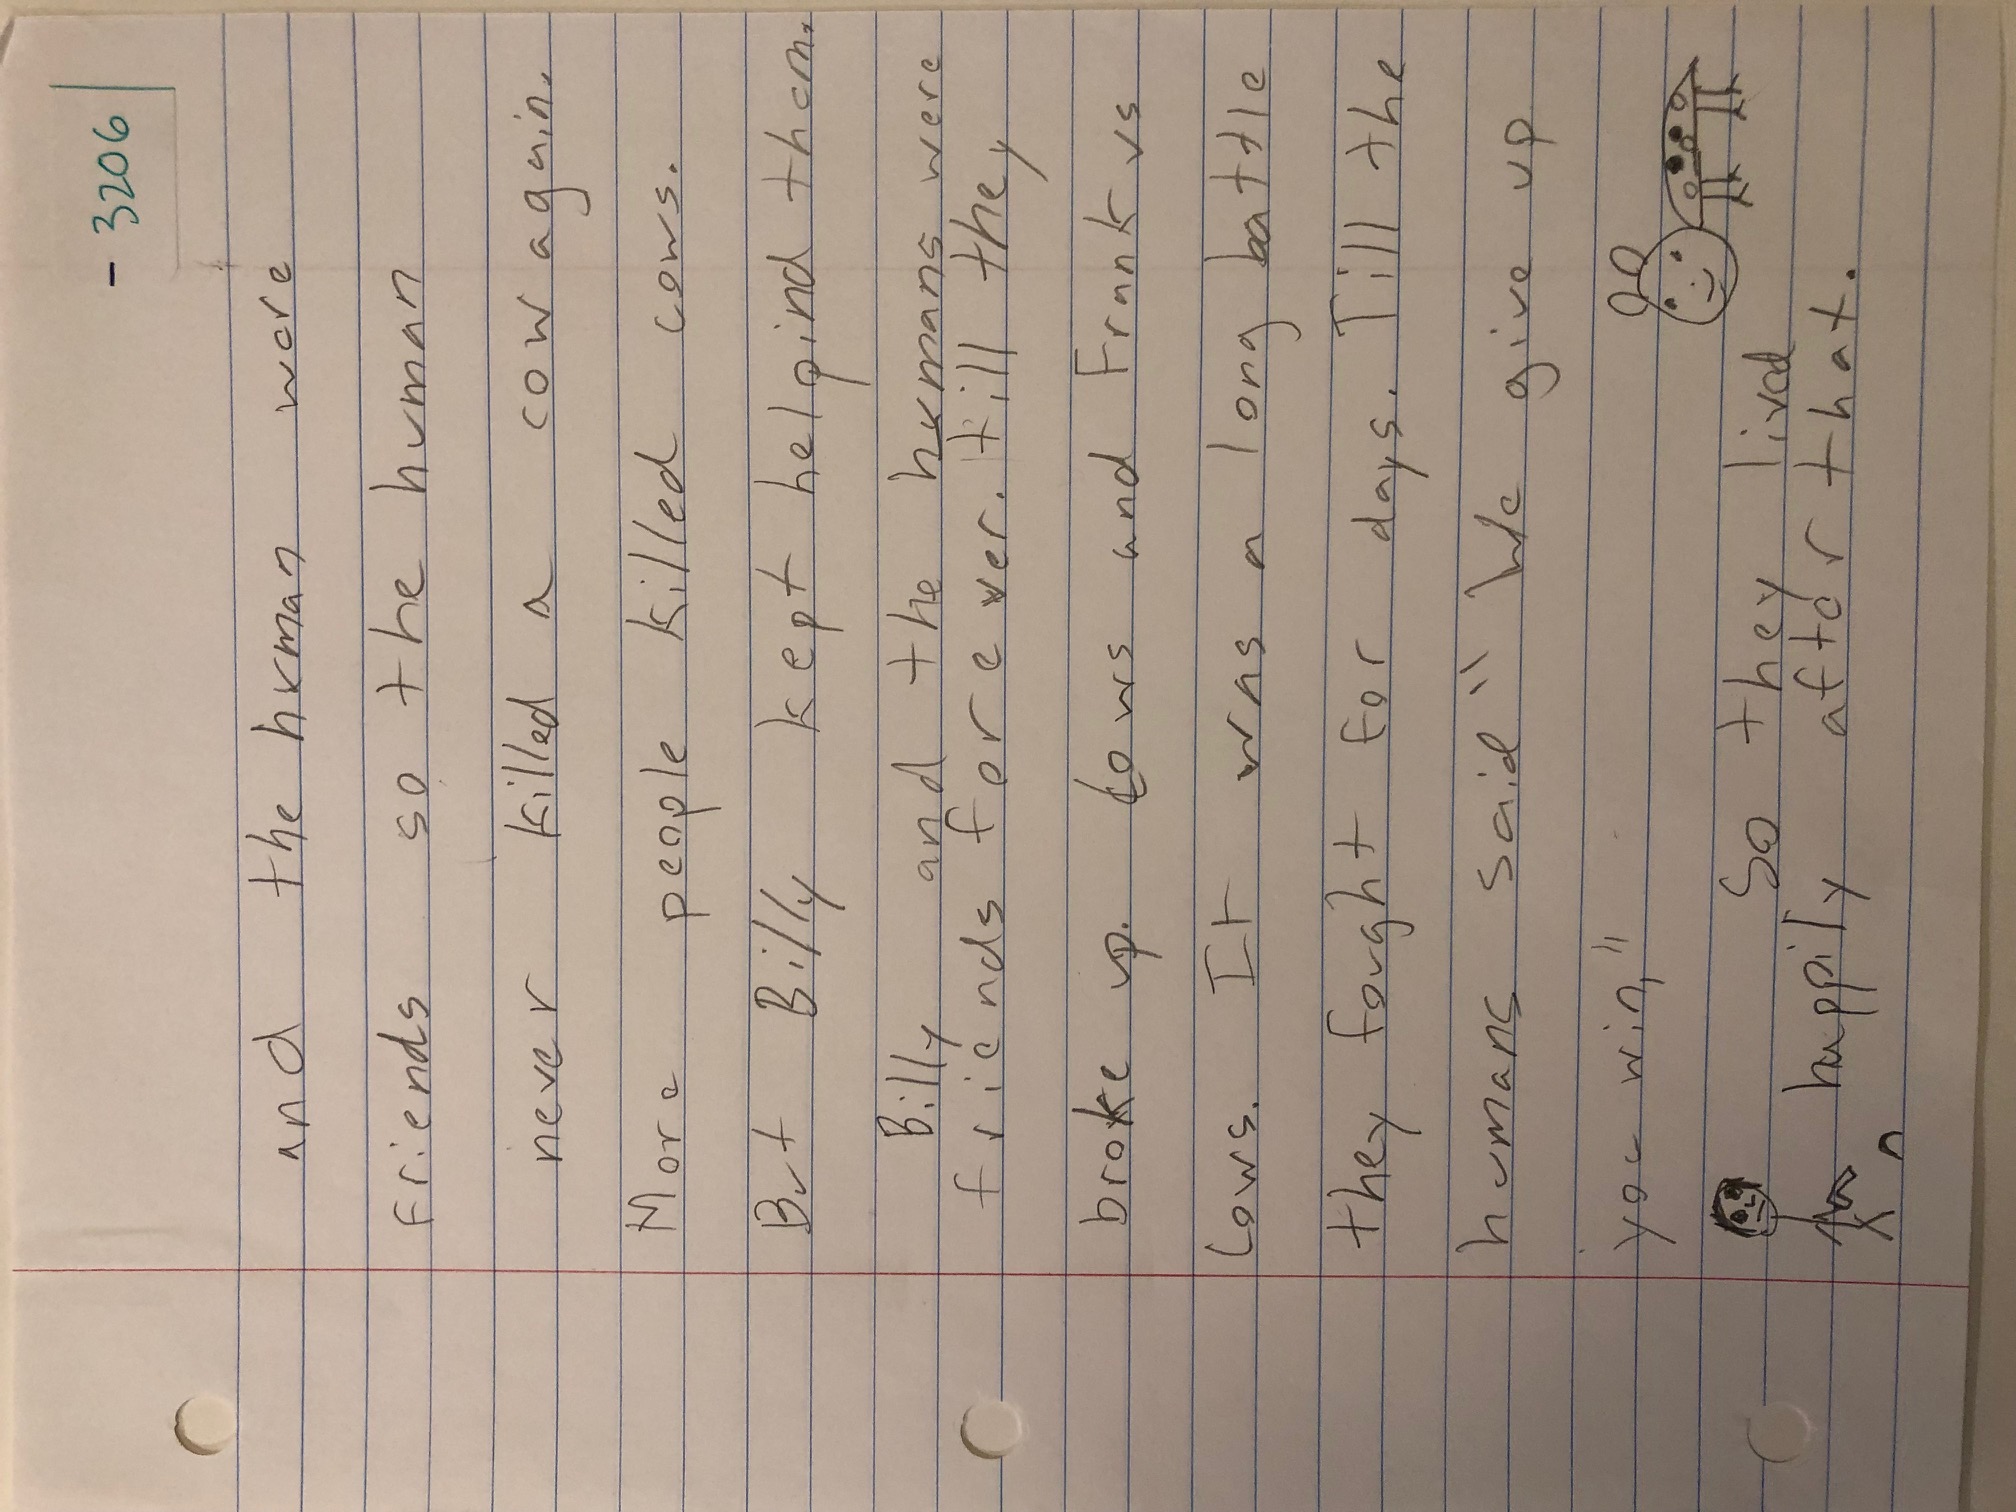 - 3206
and the human were
Friends so the human
never killed a cow again.
More people killed cows.
But Billy kept helpind them.
Billy and the humans were
friends for ever. till they
broke up. Cows and Frank vs
Cows. It was a long battle
they fought for days. Till the
humans said " We give up
you win,"
So they lived
happily after that.